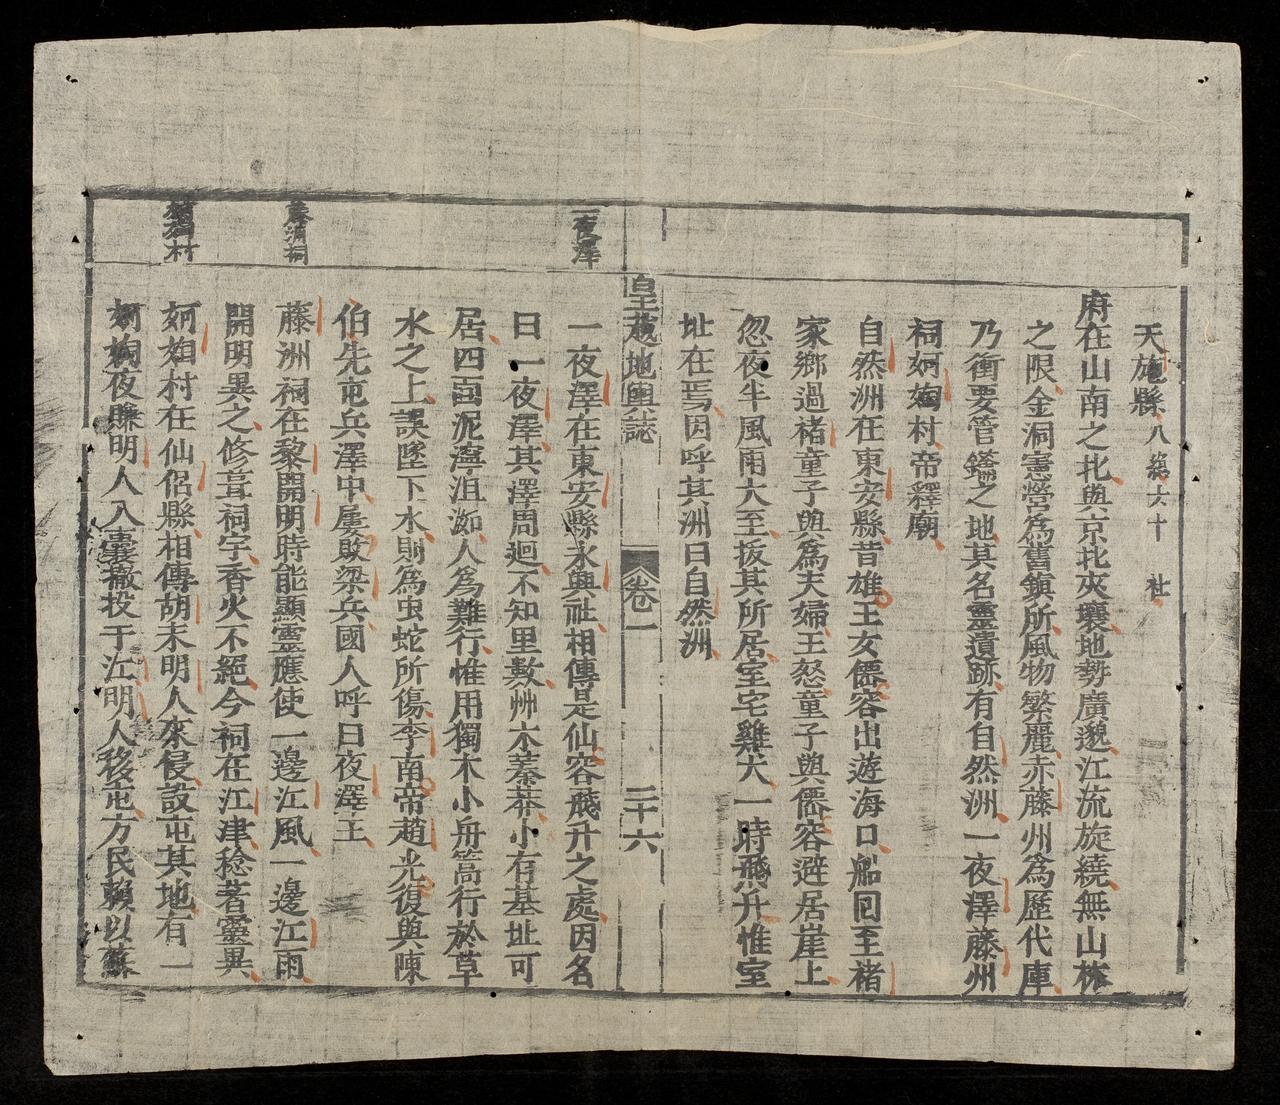 天施縣八總六十　社
府在山南之北與京北夾壤地勢廣邈江流旋繞無山林
之限金洞憲營為舊鎮所風物繁麗赤藤州為歷代庫
乃衝要管鑰之地其名靈遺跡有自然洲一夜澤藤州
祠妸㛦村帝釋廟
自然洲在東安縣昔雄王女僊容出遊海口船回至褚
家鄉過褚童子與為夫婦王怒童子與僊容避居崖上
忽夜半風雨大至拔其所居室宅雞犬一時飛升惟室
址在焉因呼其洲曰自然洲
皇越地輿誌
卷一
二十六
一夜澤
一夜澤在東安縣永興社相傳是仙容飛升之處因名
曰一夜澤其澤周迴不知里數艸木蓁莽小有基址可
居四面泥濘沮洳人為難行惟用獨木小舟篙行於草
水之上誤墜下水則為虫蛇所傷李南帝趙光復與陳
伯先屯兵澤中屢敗梁兵國人呼曰夜澤王
藤洲祠
藤洲祠在黎開明時能顯靈應使一邊江風一邊江雨
開明異之修葺祠宇香火不絕今祠在江津稔著靈異
妸㛦村
妸㛦村在仙侶縣相傳胡末明人來侵設屯其地有一
妸㛦夜賺明人入囊撤投于江明人移屯方民賴以蘇